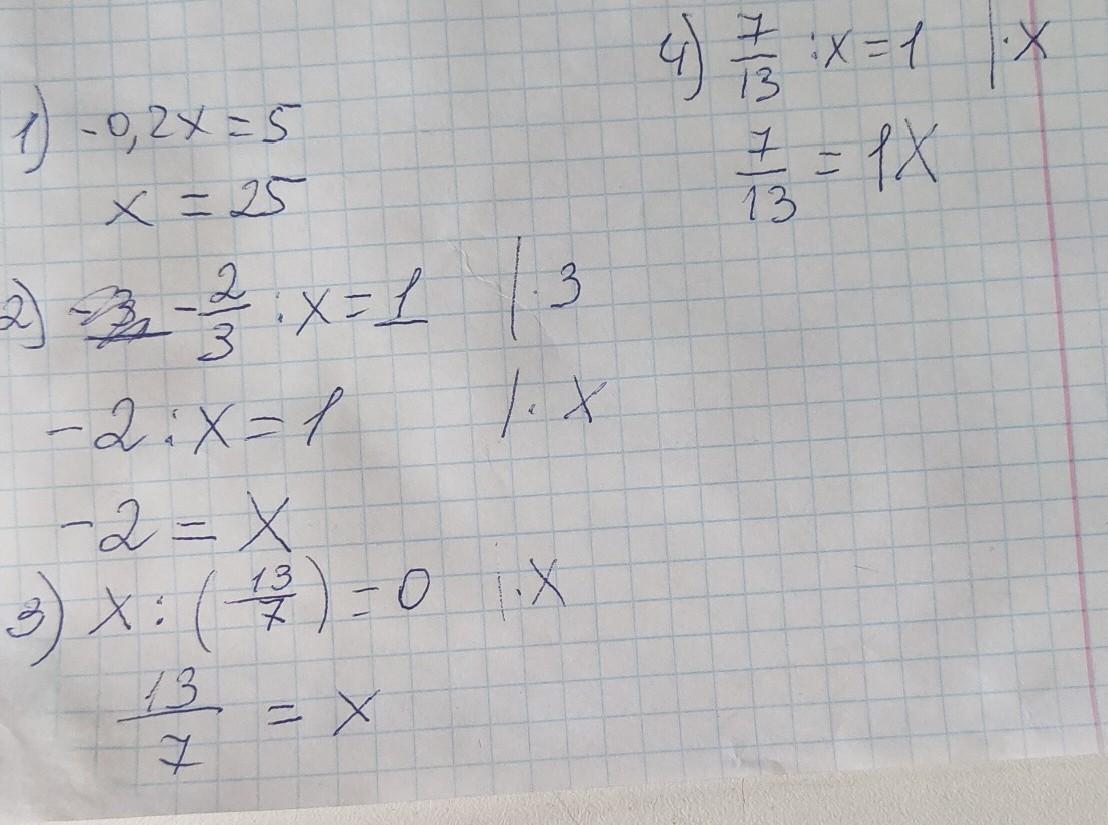 1) -0,2x=5
x = 25
2) -\frac{2}{3} : x = 1 | · 3
-2 : x = 1 | · x
-2 = x
3) x : (-\frac{13}{7}) = 0 | · x
\frac{13}{7} = x
4) \frac{7}{13} : x = 1 | · x
\frac{7}{13} = 1x